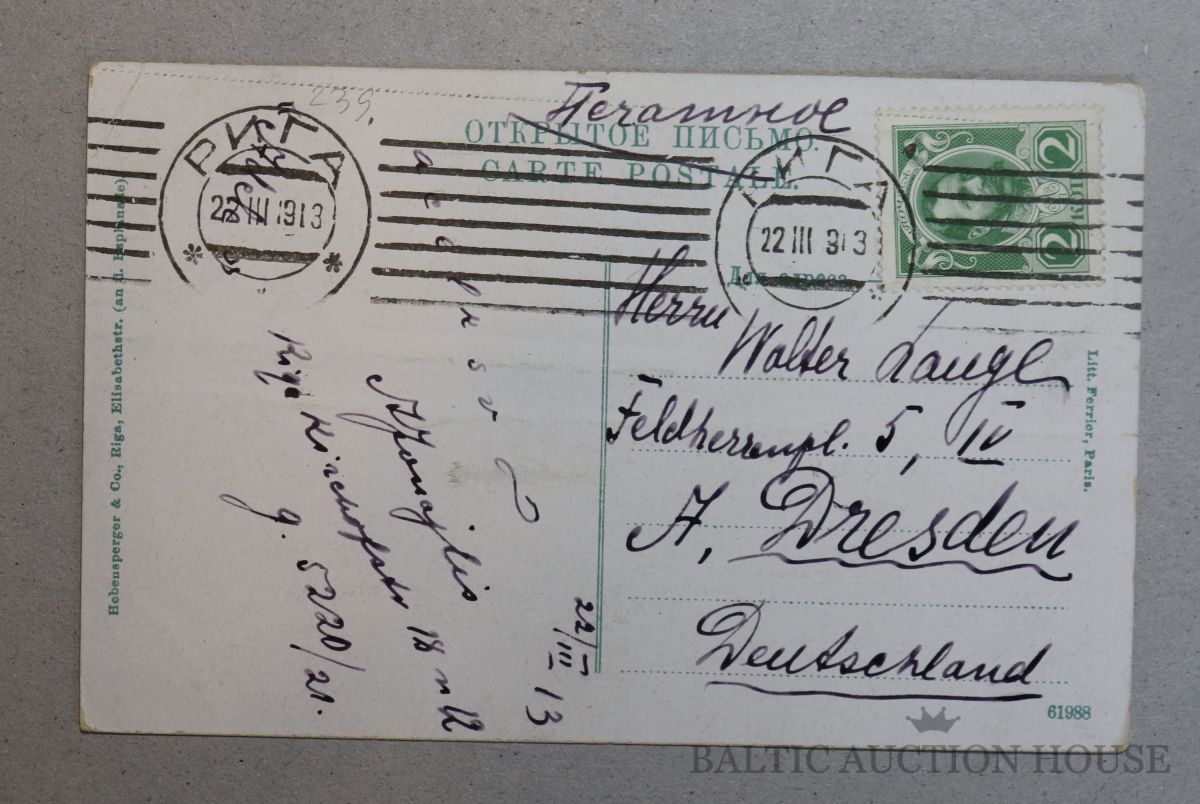 239.
Печатное
ОТКРЫТОЕ ПИСЬМО.
CARTE POSTALE.
РИГА
22 III 1913
РИГА
22 III 913
2
2
Для адреса
Herrn
Walter Lange
Feldherrenpl. 5, IV
A, Dresden
Deutschland
Riga Kirchofstr 18 n 12
g. 5220/21.
22/III 13
Hebensperger & Co., Riga, Elisabethstr. (an d. Esplanade)
Litt. Ferrier, Paris.
61988
BALTIC AUCTION HOUSE